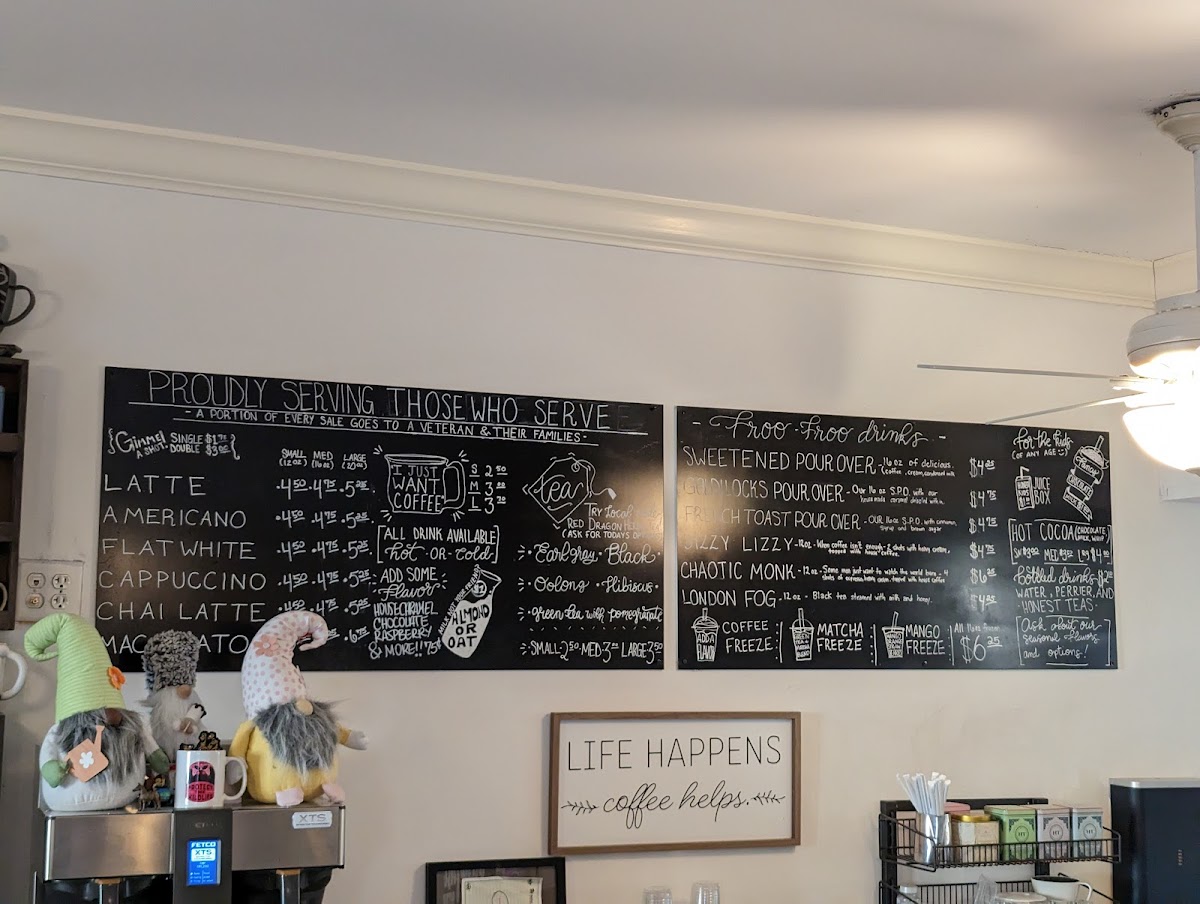 PROUDLY SERVING THOSE WHO SERVE
- A PORTION OF EVERY SALE GOES TO A VETERAN & THEIR FAMILIES -
{Gimme! A SHOT. SINGLE $1.75 DOUBLE $3.00}
SMALL (12oz) MED (16oz) LARGE (20oz)
LATTE .4.50 .4.75 .5.25
AMERICANO .4.50 .4.75 .5.25
FLAT WHITE .4.50 .4.75 .5.25
CAPPUCCINO .4.50 .4.75 .5.25
CHAI LATTE .4.50 .4.75 .5.25
I JUST
WANT
COFFEE
S 2.50
M 3.00
L 3.70
[ALL DRINK AVAILABLE
hot -OR- cold]
ADD SOME
Flavor
HOUSE CARAMEL
CHOCOLATE
RASPBERRY
& MORE!! 75¢
ALMOND
OR
OAT
tea
TRY Local
RED DRAGON
(ASK FOR TODAYS
Earl grey • Black
Oolong • Hibiscus
Green Tea with pomegranate
SMALL 2.50 MED 3.00 LARGE 3.50
- Froo-Froo drinks -
SWEETENED POUR OVER - 16 oz of delicious $4.25
GOLDILOCKS POUR OVER - Our 16 oz S.P.O. with our $4.75
FRENCH TOAST POUR OVER - OUR 16oz S.P.O. with cinnamon, $4.75
syrup and brown sugar
DIZZY LIZZY - 12oz - When coffee isn't enough - 2 shots with heavy cream, $4.75
topped with house coffee
CHAOTIC MONK - 12 oz - Some men just want to watch the world burn - 4 $6.25
shots of espresso, heavy cream, topped with house coffee
LONDON FOG - 12oz - Black tea steamed with milk and honey. $4.25
ADD A
FLAVOR
COFFEE
FREEZE
MATCHA
FREEZE
MANGO
FREEZE
$6.25
for the kids
(OF ANY AGE)
JUICE
BOX
CHOCOLATE
[HOT COCOA (CHOCOLATE
bottled drinks $2.00
WATER, PERRIER, AND
HONEST TEAS.
[Ask about our
seasonal flavors
and options!]
LIFE HAPPENS
coffee helps.
XTS
FETCO
XTS